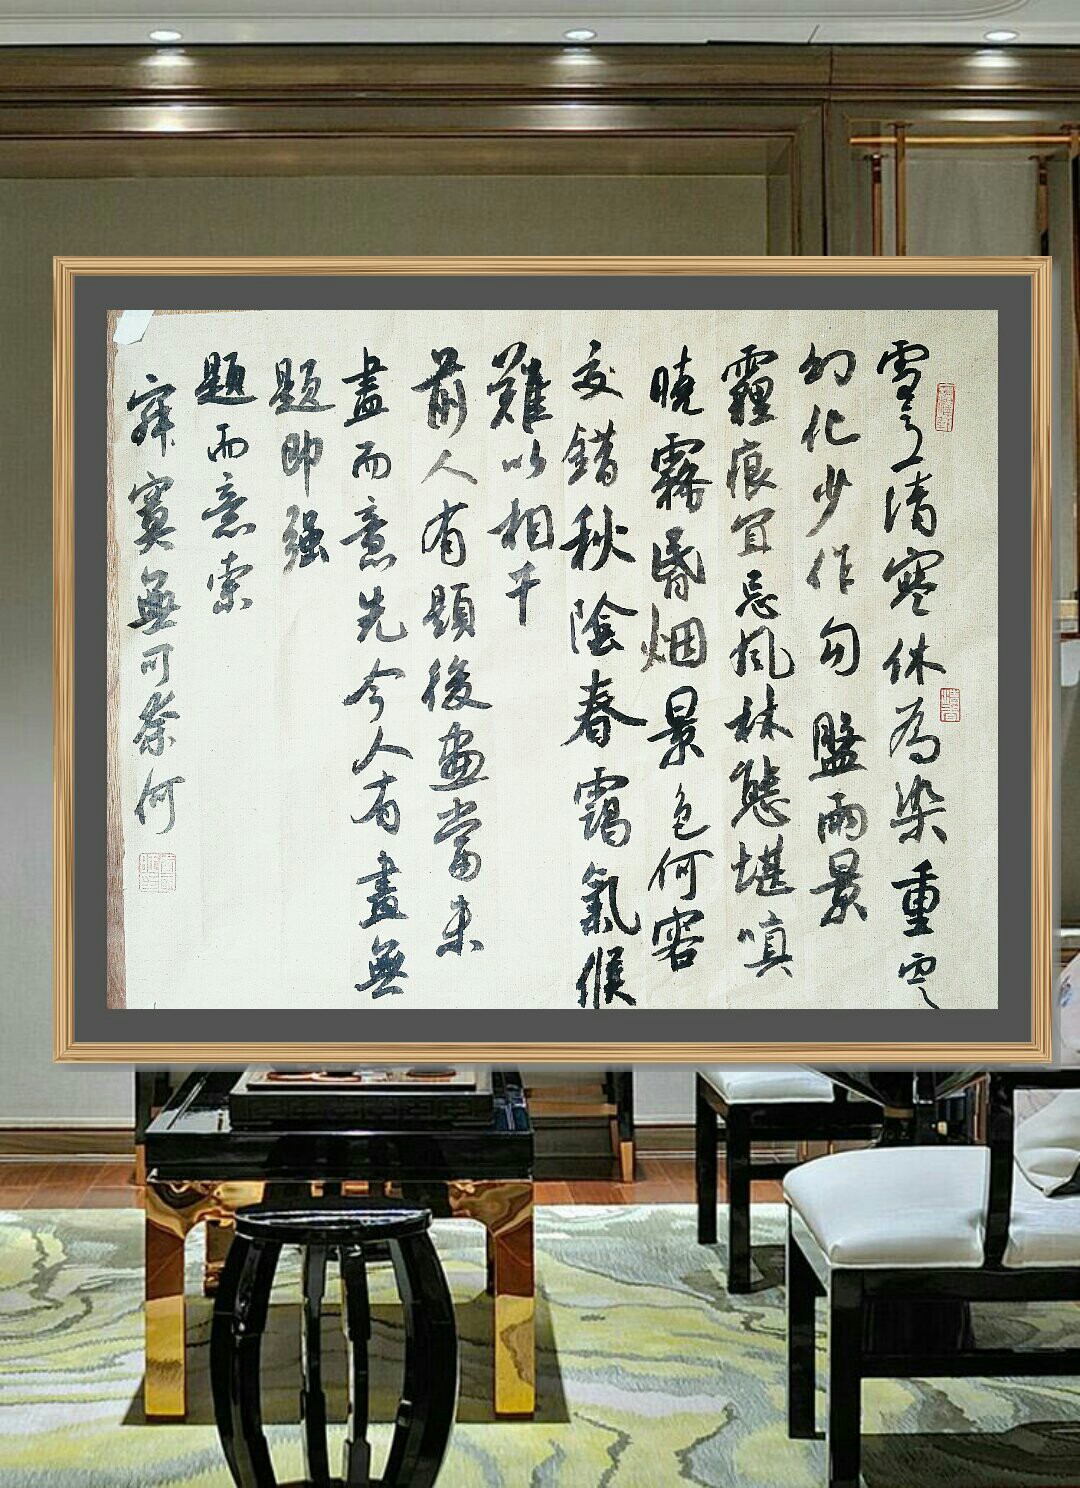 雪意清寒休为染重雲
幻化少作勾盤雨景
霾痕宜忌風林態堪嗔
曉霧昏烟景色何容
交錯秋陰春靄氣候
難以相干
前人有題後畫當未
畫而意先今人有畫無
題即强
題而意索
寐寞無可奈何